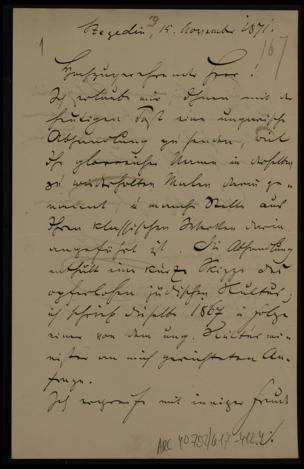 Szegedin, 15. November 1871.
1
167
Hochzuverehrender Herr!
Ich erlaube mir, Ihnen mit der
heutigen Post eine ungarische
Abhandlung zu senden, weil
Ihr glorreicher Name in derselben
zu wiederholten Malen darin ge-
nannt, u manche Stelle aus
Ihren klassischen Werken darin
angeführt ist. Die Abhandlung
enthält eine kurze Skizze des
opferlosen jüdischen Kultus;
ich schrieb dieselbe 1867 in Folge
einer von dem ung. Kultusmi-
nister an mich gerichteten An-
frage.
Ich ergreife mit inniger Freude
ARC 40 792/